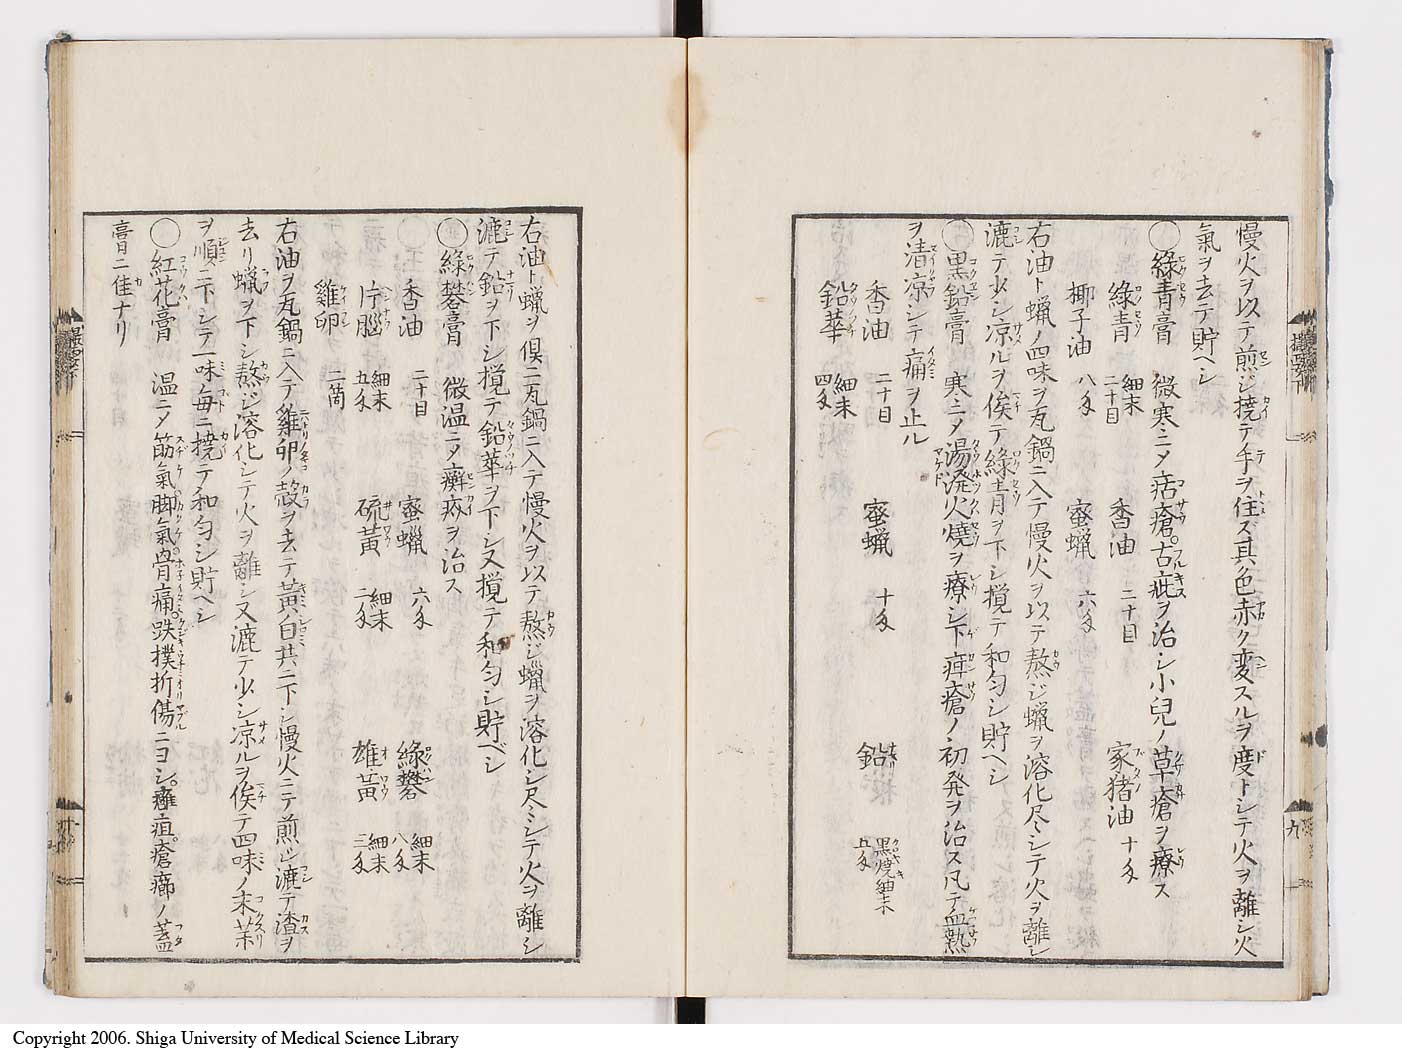 慢火ヲ以テ煎ジ撹テ手ヲ住ズ其色赤ク変スルヲ度トシテ火ヲ離シ火
氣ヲ去テ貯ベシ
○綠青膏 微寒ニメ痁瘡。古疵ヲ治シ小兒ノ草瘡ヲ療ス
綠青 細末二十目 香油 二十目 家猪油 十匁
椰子油 八匁 蜜蝋 六匁
右油ト蝋ノ四味ヲ瓦鍋ニ入テ慢火ヲ以テ熬ジ蝋ヲ溶化尽シテ火ヲ離シ
漉テ少シ凉ルヲ俟テ綠青ヲ下シ撹テ和匀シ貯ベシ
○黒鉛膏 寒ニメ湯潑火燒ヲ療シ下疳瘡ノ初発ヲ治ス凡テ血熱
ヲ清凉シテ痛ヲ止ル
香油 二十目 蜜蝋 十匁 鉛 黒燒細末五匁
鉛華 細末四匁
右油ト蝋ヲ倶ニ瓦鍋ニ入テ慢火ヲ以テ熬ジ蝋ヲ溶化シ尽シテ火ヲ離シ
漉テ鉛ヲ下シ撹テ鉛華ヲ下シ又撹テ和匀シ貯ベシ
○綠礬膏 微温ニメ癬疥ヲ治ス
香油 二十目 蜜蝋 六匁 綠礬 細末八匁
片腦 細末五匁 硫黄 細末二匁 雄黄 細末三匁
雞卵 二箇
右油ヲ瓦鍋ニ入テ雞卵ノ殻ヲ去テ黄ノ白共ニ下シ慢火ニテ煎ジ漉テ渣ヲ
去リ蝋ヲ下シ熬ジ溶化シテ火ヲ離シ又漉テ少シ凉ルヲ俟テ四味ノ末薬
ヲ順ニ下シテ一味毎ニ撹テ和匀シ貯ベシ
○紅花膏 温ニメ筋氣脚氣骨痛跌撲折傷ニヨシ。癰疽。瘡癤ノ蓋
膏ニ佳ナリ
九
Copyright 2006. Shiga University of Medical Science Library